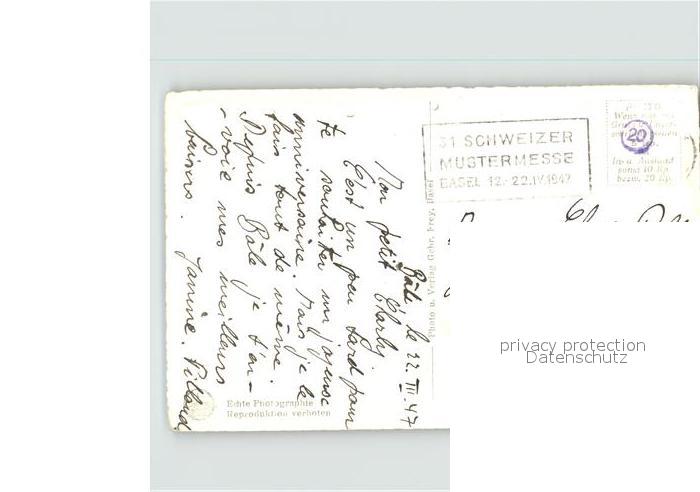 Bâle le 22.III.47
Mon petit Charly.
C'est un peu tard pour
te souhaiter un joyeuse
anniversaire. Mais je le
fais tout de même.
Depuis Bâle je t'en-
-voie mes meilleurs
baisers. Janine.
31 SCHWEIZER
MUSTERMESSE
BASEL 12.-22.IV.1947
20
Photo u. Verlag Gebr. Frey, Basel
Echte Photographie
Reproduktion verboten
In u. Ausland
sonst 10 Rp.
bezw. 20 Rp.
privacy protection
Datenschutz